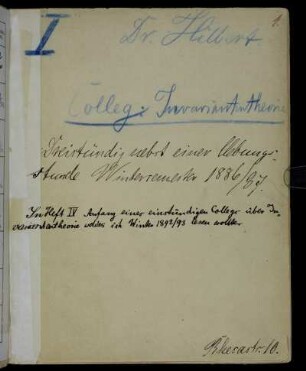 1.
I
Dr. Hilbert
Colleg: Invariantentheorie
Dreistündig nebst einer Übungs-
stunde Wintersemester 1886/87
In Heft IV Anfang einer einstündigen Collegs über In-
variantentheorie welches ich Winter 1892/93 lesen wollte.
10.